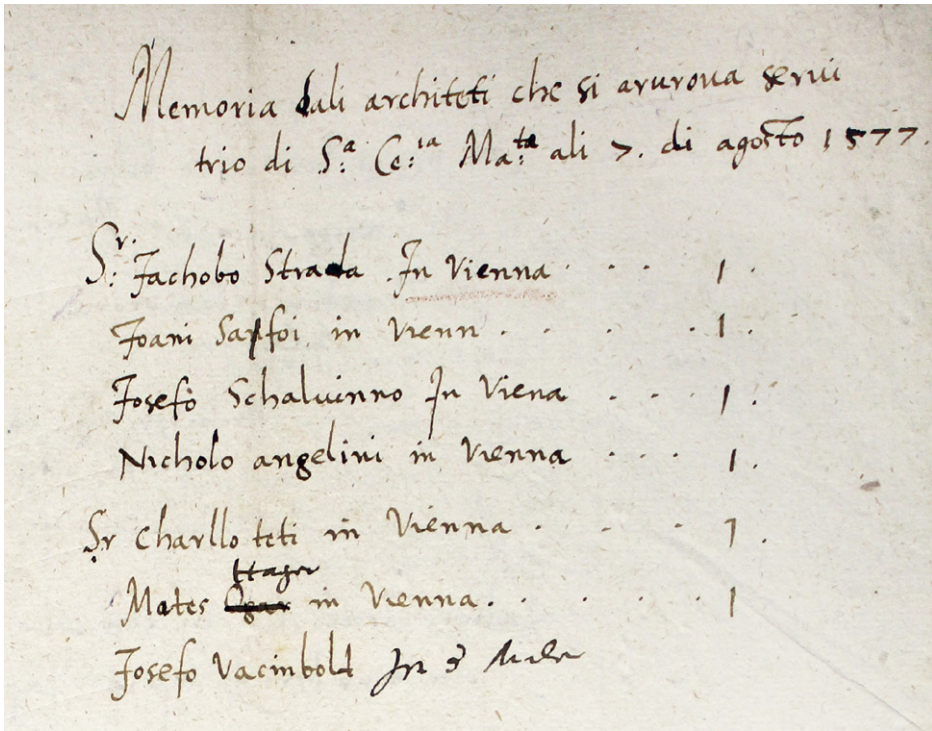 Memoria dali architeti che si arurova servi
trio di S:a Ce:ia Ma:ta ali 7. di agosto 1577.
S:r. Jachobo Strada . In Vienna . . . 1 .
Joani Salfoi in Vienn . . . . 1 .
Josefo Schalvinno In Viena . . . 1 .
Nicholo angelini in Vienna . . . 1 .
Sr Charllo teti in Vienna . . . 1 .
Mates in Vienna . . . . 1
Josefo Vacinbolt In